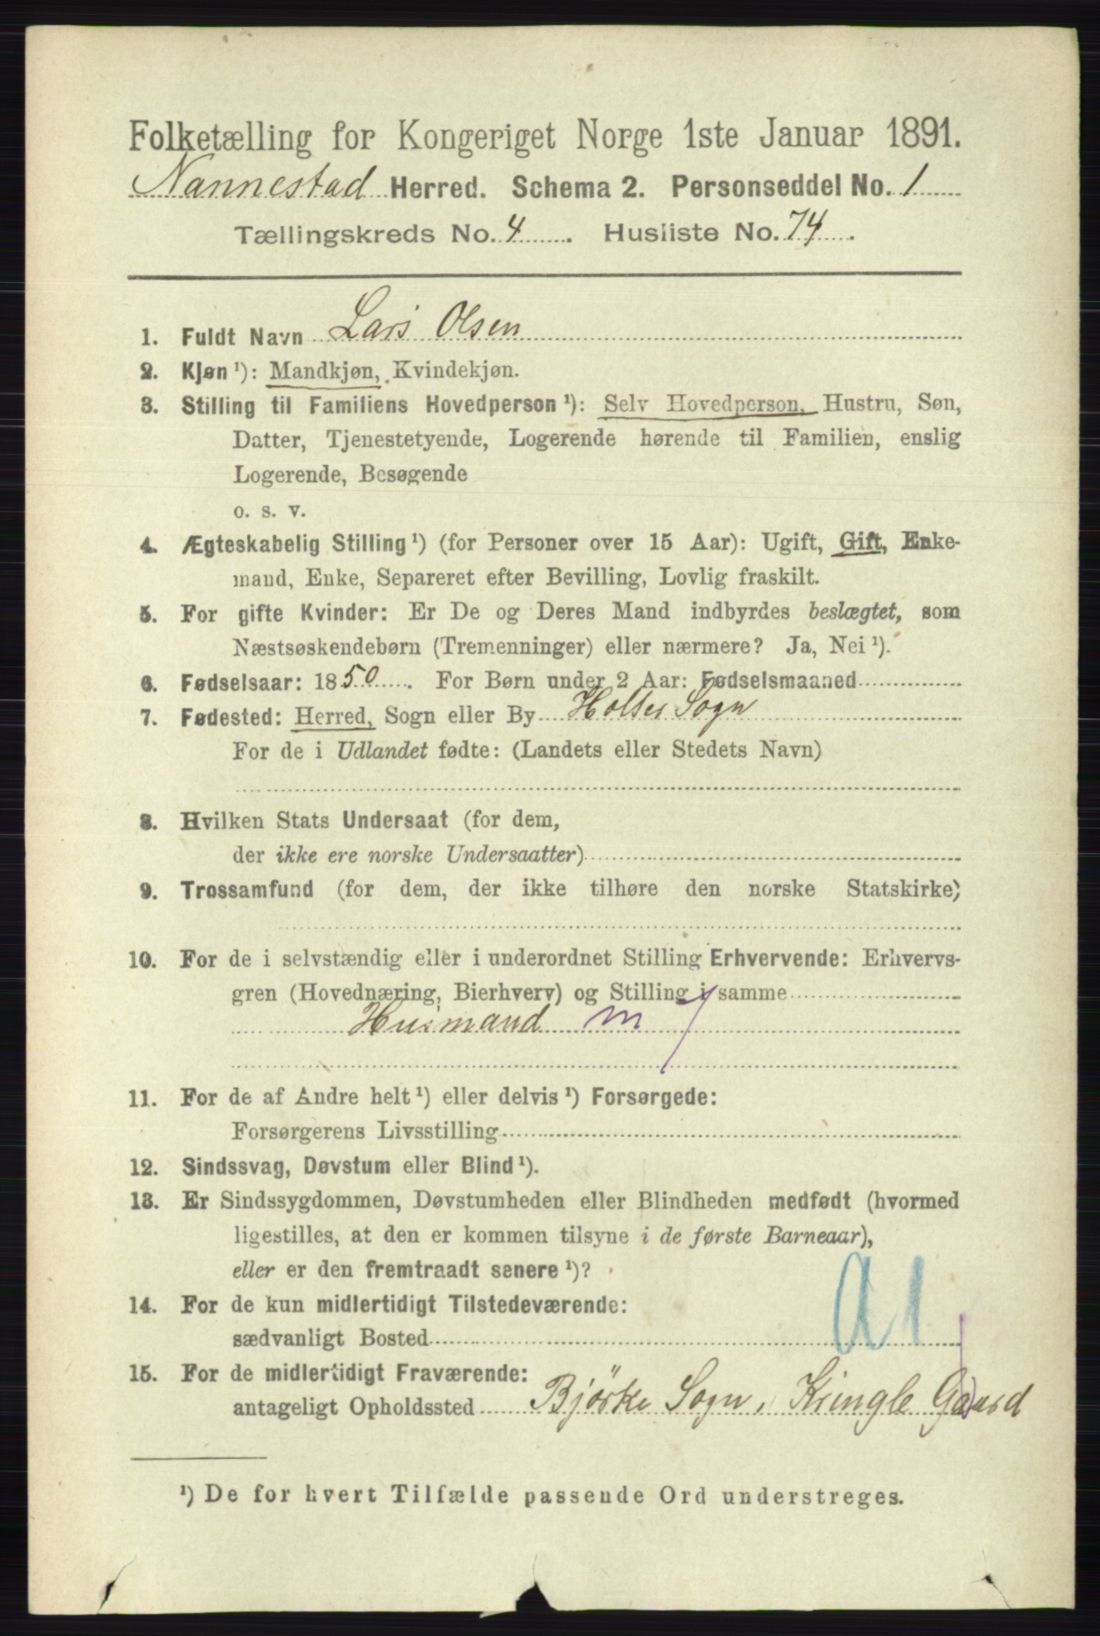 Folketælling for Kongeriget Norge 1ste Januar 1891.
Nannestad Herred. Schema 2. Personseddel No. 1
Tællingskreds No. 4. Husliste No. 74.
1. Fuldt Navn Lars Olsen
2. Kjøn ¹): Mandkjøn, Kvindekjøn.
3. Stilling til Familiens Hovedperson ¹): Selv Hovedperson, Hustru, Søn,
Datter, Tjenestetyende, Logerende hørende til Familien, enslig
Logerende, Besøgende
o. s. v.
4. Ægteskabelig Stilling ¹) (for Personer over 15 Aar): Ugift, Gift, Enke-
mand, Enke, Separeret efter Bevilling, Lovlig fraskilt.
5. For gifte Kvinder: Er De og Deres Mand indbyrdes beslægtet, som
Næstsøskendebørn (Tremenninger) eller nærmere? Ja, Nei ¹).
6. Fødselsaar: 1850. For Børn under 2 Aar: Fødselsmaaned
7. Fødested: Herred, Sogn eller By Holter Sogn
For de i Udlandet fødte: (Landets eller Stedets Navn)
8. Hvilken Stats Undersaat (for dem,
der ikke ere norske Undersaatter)
9. Trossamfund (for dem, der ikke tilhøre den norske Statskirke)
10. For de i selvstændig eller i underordnet Stilling Erhvervende: Erhvervs-
gren (Hovednæring, Bierhverv) og Stilling i samme
Husmand m
11. For de af Andre helt ¹) eller delvis ¹) Forsørgede:
Forsørgerens Livsstilling
12. Sindssvag, Døvstum eller Blind ¹).
13. Er Sindssygdommen, Døvstumheden eller Blindheden medfødt (hvormed
ligestilles, at den er kommen tilsyne i de første Barneaar),
eller er den fremtraadt senere ¹)?
14. For de kun midlertidigt Tilstedeværende:
sædvanligt Bosted a 1
15. For de midlertidigt Fraværende:
antageligt Opholdssted Bjørke Sogn, Kringle Gaard
¹) De for hvert Tilfælde passende Ord understreges.